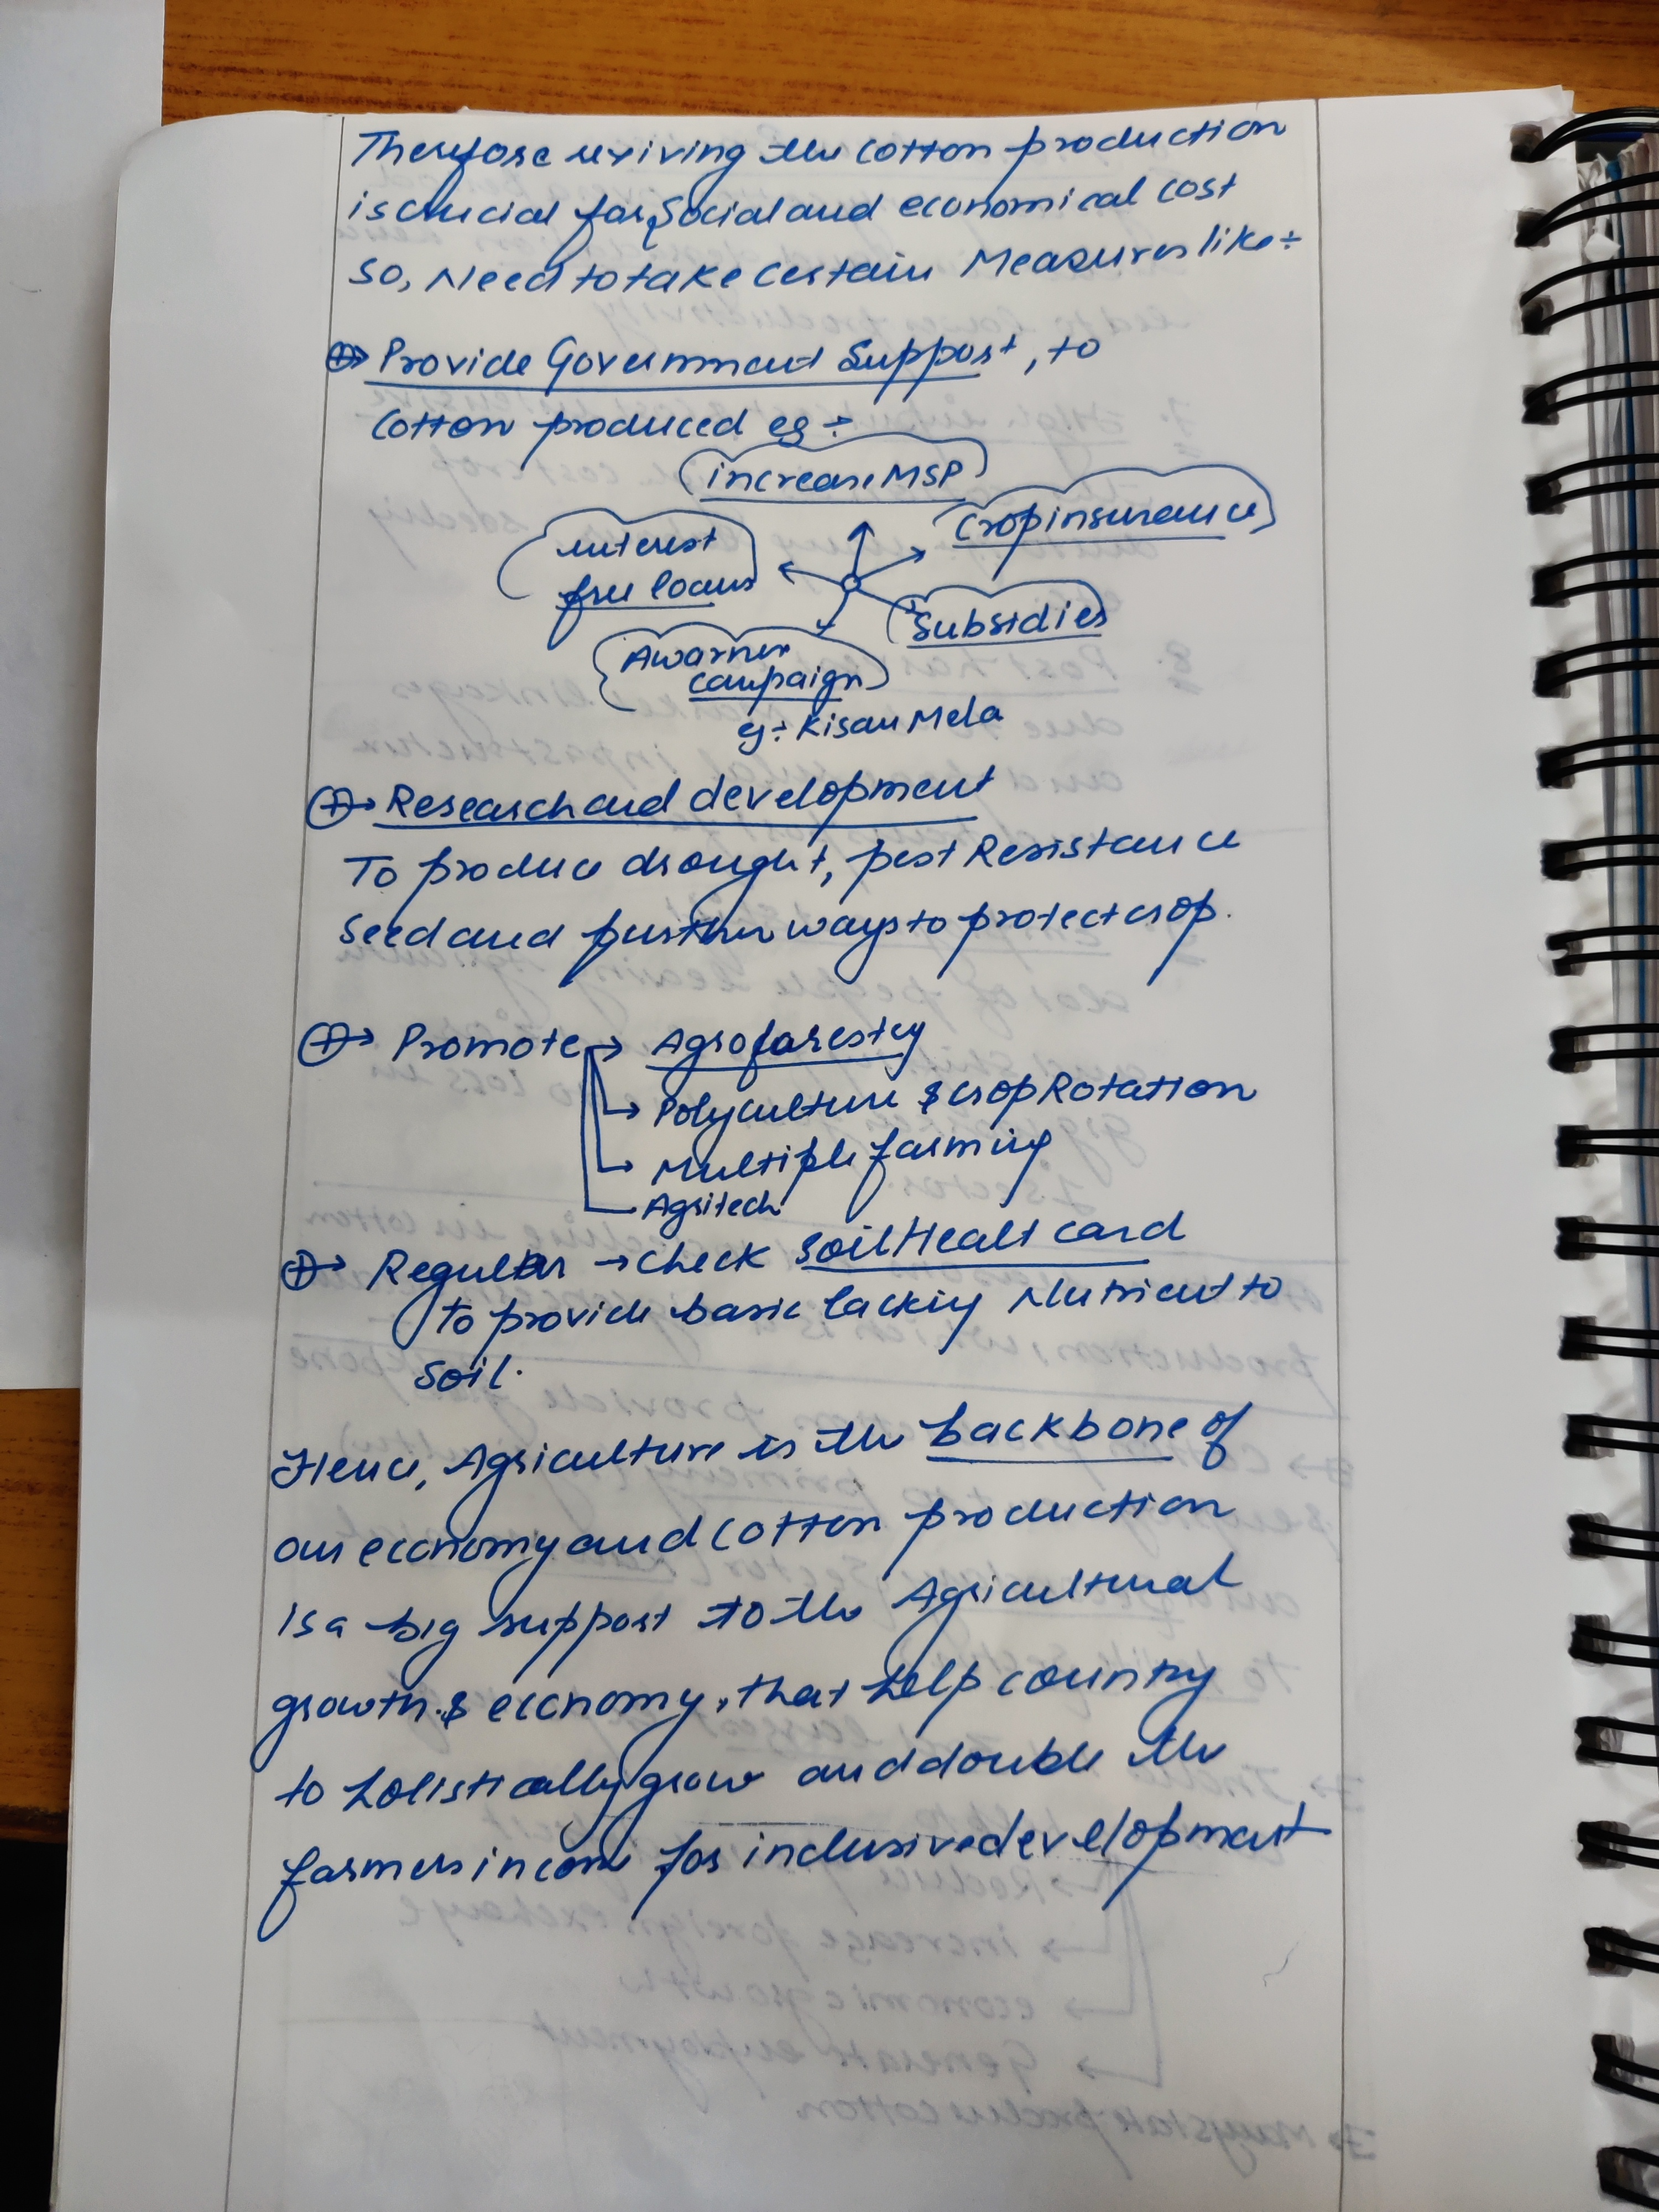 Therefore reviving the cotton production
is crucial for social and economical cost
So, Need to take certain Measures like ÷
⊕→ Provide Government Support, to
Cotton produced eg ÷
increase MSP
Crop insurance
interest
free loans
Subsidies
Awarness
campaign
eg ÷ Kisan Mela
⊕→ Research and development
To produce drought, pest Resistance
Seed and further ways to protect crop.
⊕→ Promote → Agroforestry
→ Polyculture & crop Rotation
→ Multiple farming
Agritech
⊕→ Regular → check Soil Healt card
to provide basic lacking Nutrient to
soil.
Hence, Agriculture is the backbone of
our economy and cotton production
is a big support to the Agricultural
growth & economy, that help country
to holistically grow and double the
farmers income for inclusive development